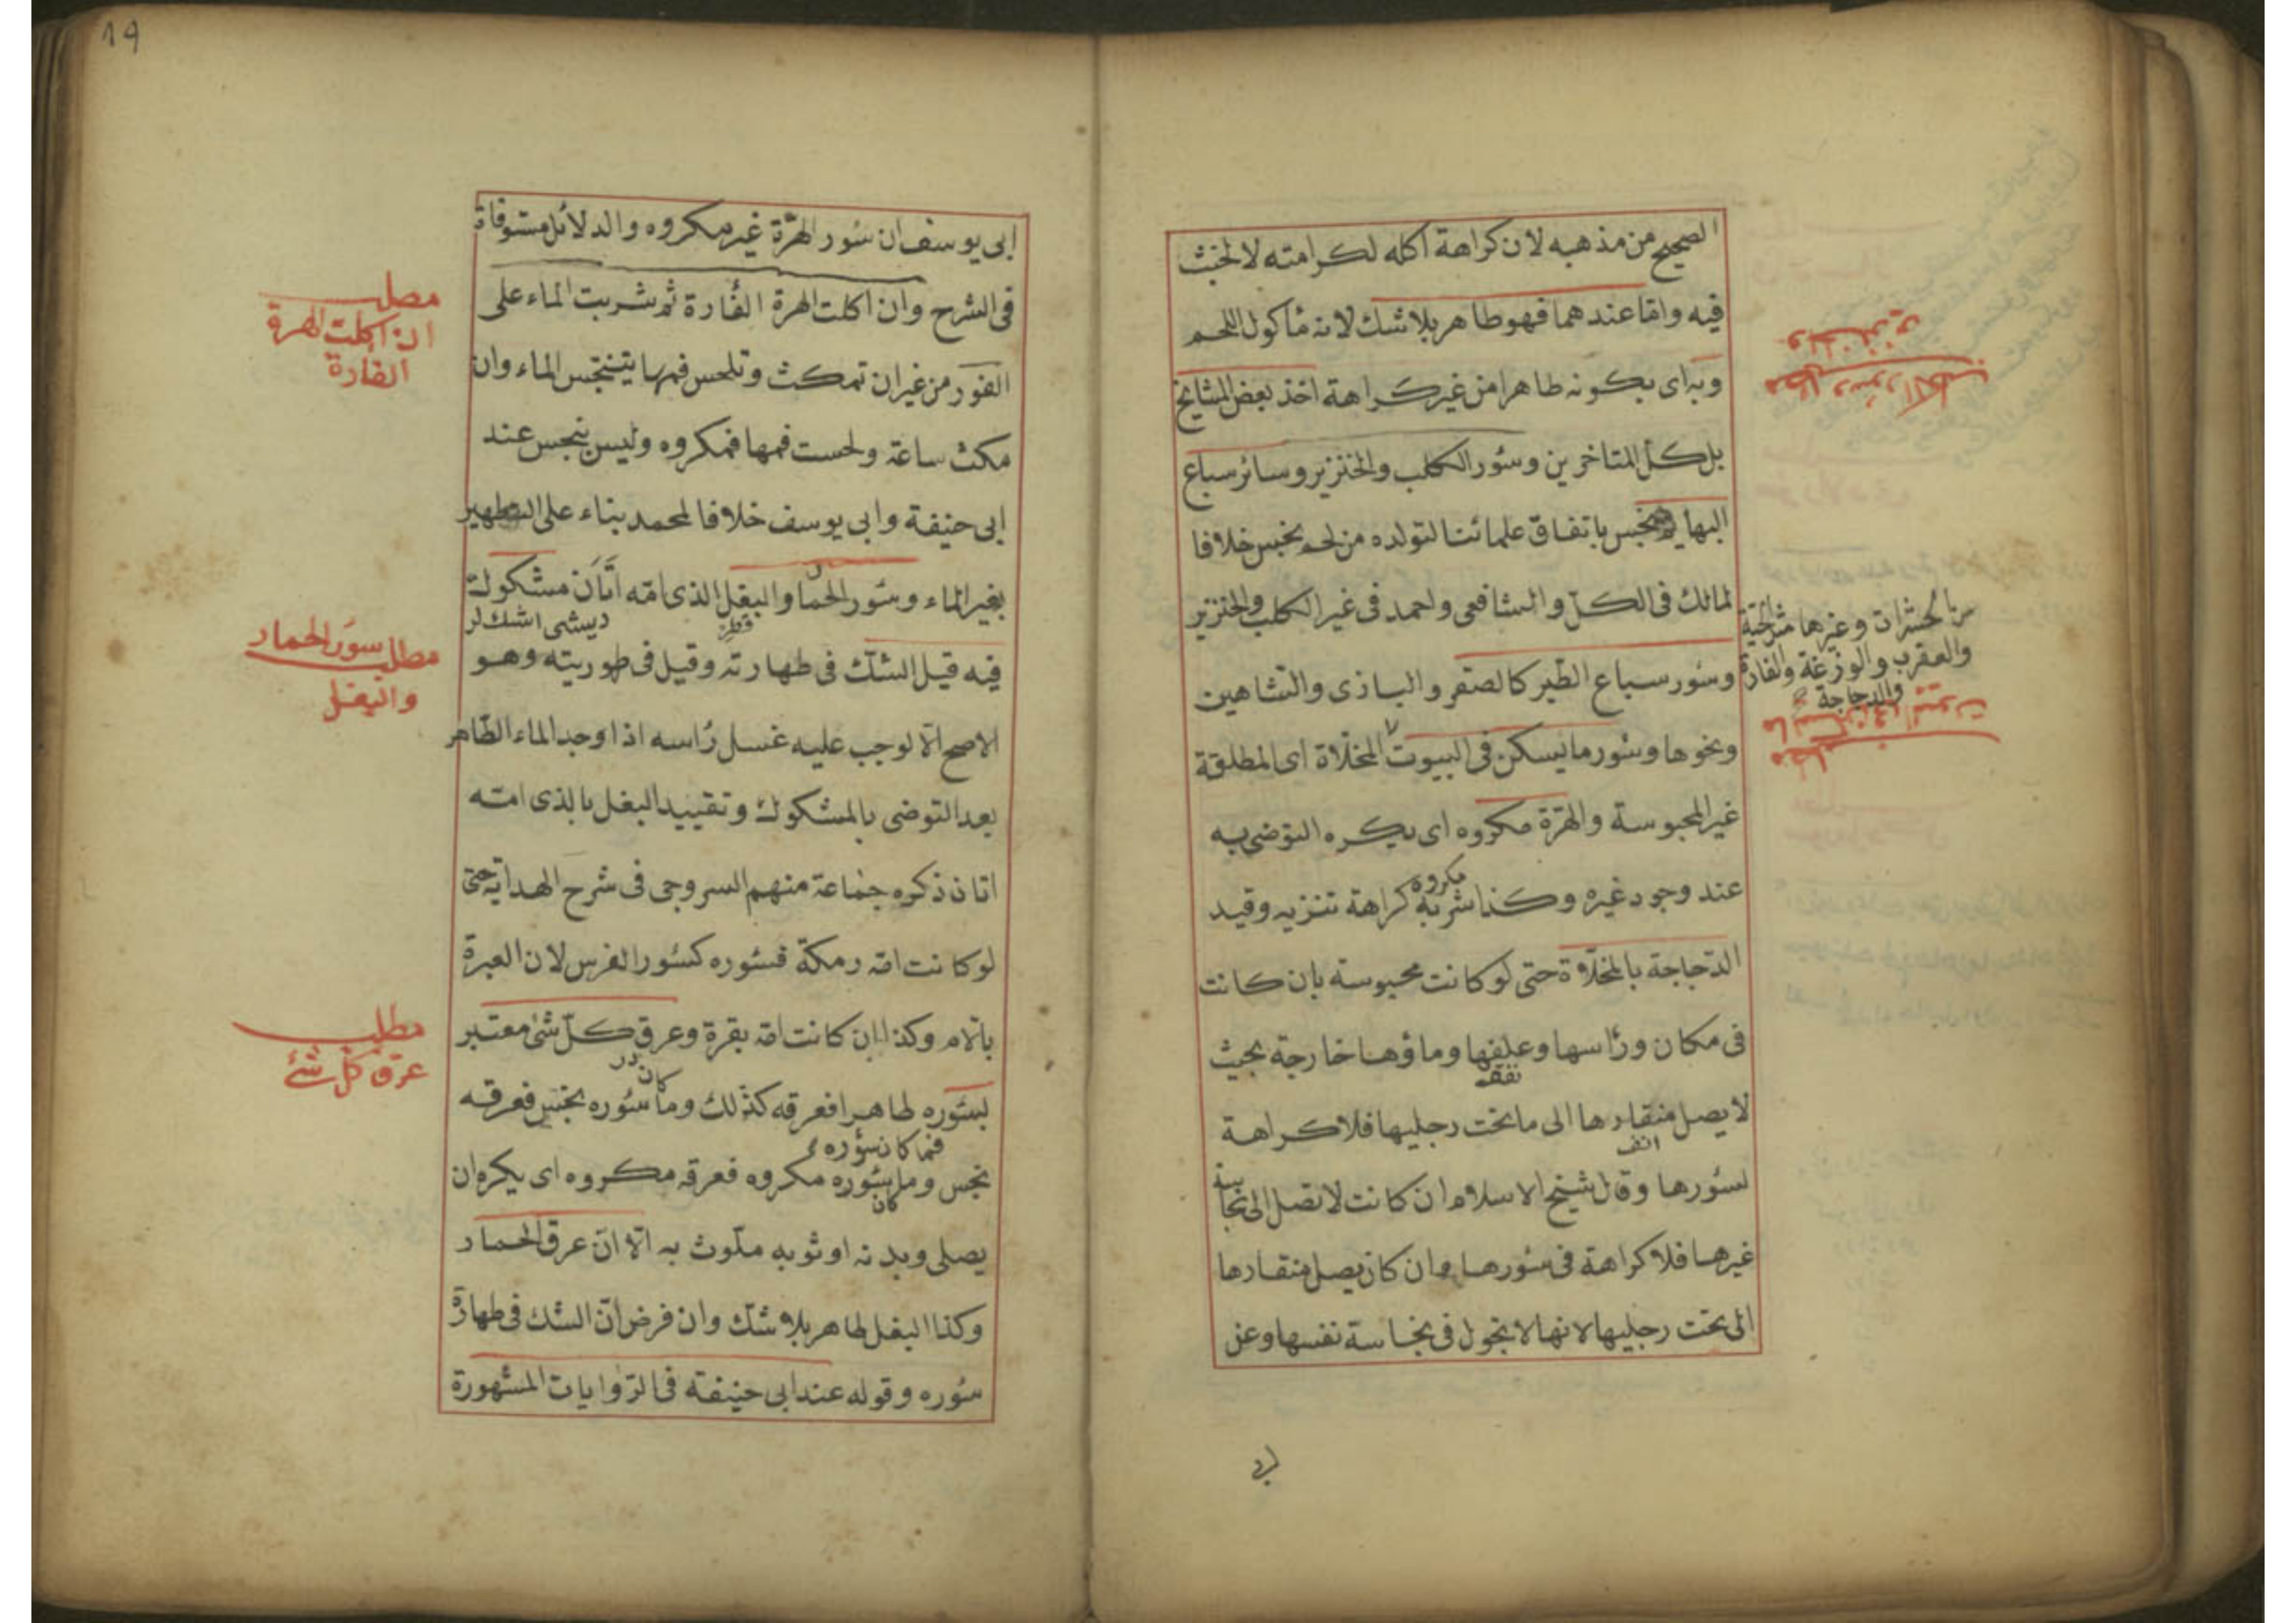 الصحيح من مذهبه لان كراهة اكله لكرامته لا لخبث
فيه واما عندهما فهو طاهر بلا شك لانه مأكول اللحم
وبه اى بكونه طاهرا من غير كراهة اخذ بعض المشايخ
بل كل المتاخرين وسؤر الكلب والخنزير وسائر سباع
البهايم نجس باتفاق علمائنا لتولده من لحم نجس خلافا
لمالك فى الكل والشافعى واحمد فى غير الكلب والخنزير
وسؤر سباع الطير كالصقر والبازى والشاهين
ونحوها وسؤر ما يسكن فى البيوت المخلاة اى المطلقة
غير المحبوسة والهرة مكروه اى يكره التوضى به
عند وجود غيره وكذا شربه مكروه كراهة تنزيه وقيد
الدجاجة بالمخلاة حتى لو كانت محبوسة بان كانت
فى مكان ورأسها وعلفها وماؤها خارجة بحيث
لا يصل منقارها الى ما تحت رجليها فلا كراهة
انف
لسؤرها وقال شيخ الاسلام ان كانت لا تصل الى نجاسة
غيرها فلا كراهة فى سؤرها وان كان يصل منقارها
الى تحت رجليها لانها لا تجول فى نجاسة نفسها وعن
مطلب سؤر الكلب
والخنزير
من الحشرات وغيرها مثل الحية
والعقرب والوزغة والفارة
والدجاجة
مطلب
ما يسكن فى البيوت
19
ابى يوسف ان سؤر الهرة غير مكروه والدلائل مستوفاة
فى الشرح وان اكلت الهرة الفأرة ثم شربت الماء على
الفور من غير ان تمكث وتلحس فمها يتنجس الماء وان
مكث ساعة ولحست فمها فمكروه وليس بنجس عند
ابى حنيفة وابى يوسف خلافا لمحمد بناء على التطهير
بغير الماء وسؤر الحمار والبغل الذى امه اتان مشكوك
فيه قيل الشك فى طهارته وقيل فى طهوريته وهو
الاصح الا لوجب عليه غسل رأسه اذا وجد الماء الطاهر
بعد التوضى بالمشكوك وتقييد البغل بالذى امه
اتان ذكره جماعة منهم السروجى فى شرح الهداية حتى
لو كانت امه رمكة فسؤره كسؤر الفرس لان العبرة
بالام وكذا ان كانت امه بقرة وعرق كل شئ معتبر
بسؤره طاهرا فعرقه كذلك وما كان سؤره نجس فعرقه
فما كان سؤره
نجس وما كان سؤره مكروه فعرقه مكروه اى يكره ان
يصلى وبدنه او ثوبه ملوث به الا ان عرق الحمار
وكذا البغل طاهر بلا شك وان فرض ان الشك فى طهارة
سؤره وقوله عند ابى حنيفة فى الروايات المشهورة
مطلب
ان اكلت الهرة
الفارة
مطلب سؤر الحمار
والبغل
مطلب
عرق كل شئ